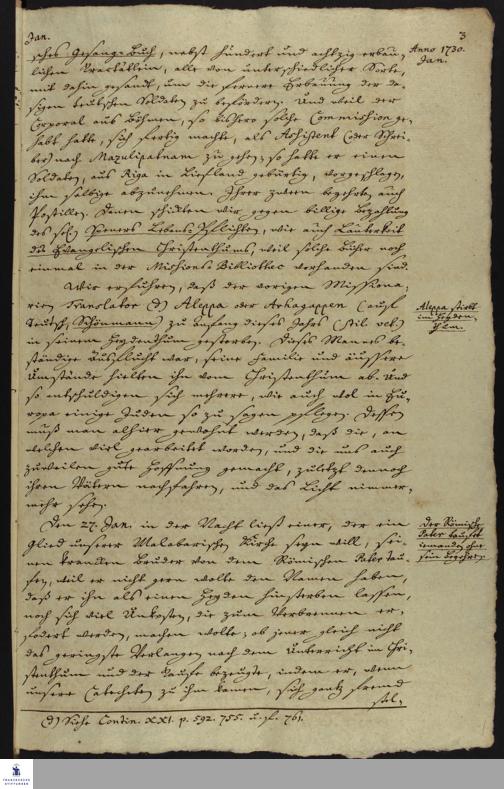 Jan.
3
Anno 1730.
Jan.
sches Gesang-Buch, nebst hundert und achtzig erbau-
lichen Tractätlein, alle von unterschiedlicher Sorte,
mit dahin gesandt, um die fernere Erbauung der da-
sigen teutschen Soldaten zu befördern. Und weil der
Corporal aus Böhmen, so bisher solche Commission ge-
habt hatte, sich fertig machte, als Assistent (oder Schrei-
ber) nach Mazulipatnam zu gehen; so hatte er einen
Soldaten, aus Riga in Liefland gebürtig, vorgeschlagen,
ihm selbige abzunehmen. Ihrer zween begehrten auch
Postillen. Denen schickten wir gegen billige Bezahlung
des sel. Speners Lebens-Pflichten, wie auch Lauterkeit
des Evangelischen Christenthums, weil solche Bücher noch
einmal in der Missions-Bibliothec vorhanden sind.
Wir erfuhren, daß der vorigen Missiona-
rien Translator (d) Aleppa oder Arhagappen (auf
Teutsch, Schönmann) zu Anfang dieses Jahrs (stil. vet.)
in seinem Heydenthum gestorben. Dieses Mannes be-
ständige Ausflucht war, seine Familie und äussere
Umstände hielten ihn vom Christenthum ab. Und
so entschuldigen sich mehrere, wie auch wol in Eu-
ropa einige Juden so zu sagen pflegen. Dessen
muß man alhier gewohnt werden, daß die, an
welchen viel gearbeitet worden, und die uns auch
zuweilen gute Hoffnung gemacht, zuletzt dennoch
ihren Vätern nachfahren, und das Licht nimmer-
mehr sehen.
Aleppa stirbt
im Heyden-
thum.
Den 27. Jan. in der Nacht ließ einer, der ein
Glied unserer Malabarischen Kirche seyn will, sei-
nen krancken Bruder von dem Römischen Pater tau-
fen, weil er nicht gern wolte den Namen haben,
daß er ihn als einen Heyden hinsterben lassen,
noch sich viel Unkosten, die zum Verbrennen er-
fodert werden, machen wolte; ob jener gleich nicht
das geringste Verlangen nach dem Unterricht im Chri-
stenthum und der Taufe bezeugte, indem er, wenn
unsere Catecheten zu ihm kamen, sich gantz fremd
stel-
Der Römische
Pater taufet
iemanden ohne
sein Begehren.
(d) Siehe Contin. XXI. p. 592. 755. u. f. 761.
FRANCKESCHE
STIFTUNGEN